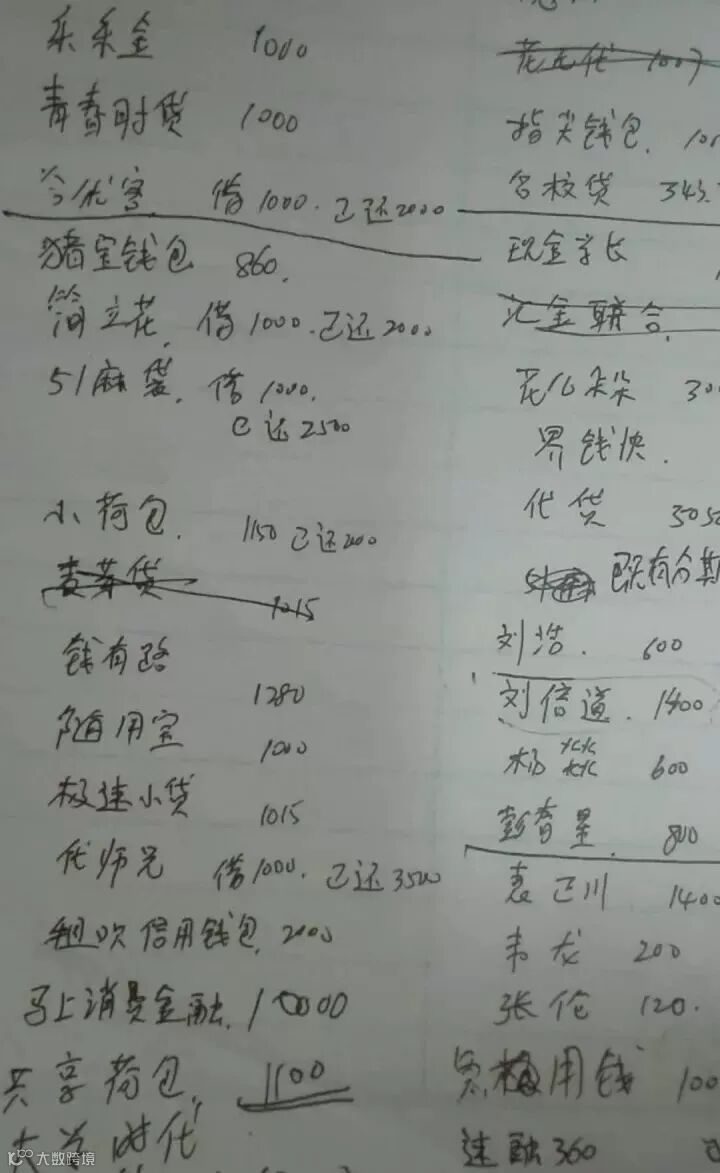 采采金 1000
青春时贷 1000
今优客 借1000.已还2000
猪宝钱包 860.
简立花, 借1000.已还2000
51麻袋. 借1000.
已还2500
小荷包. 1150 已还2000
麦芽贷 1015
钱有路 1280
随用宝 1000
极速小贷 1015
代师兄 借1000. 已还3500
信用钱包. 2000
马上消费金融. 10000
共享荷包, 1100
指尖钱包.
名校贷 343.
现金学长
汇金联合.
花儿朵朵
钱快.
代货
已有分期
刘浩. 600
刘信道. 1400
杨 600
彭春星. 800
袁正川 1400
韦龙 200
张伦 120.
用钱 100
速融360
大数跨境